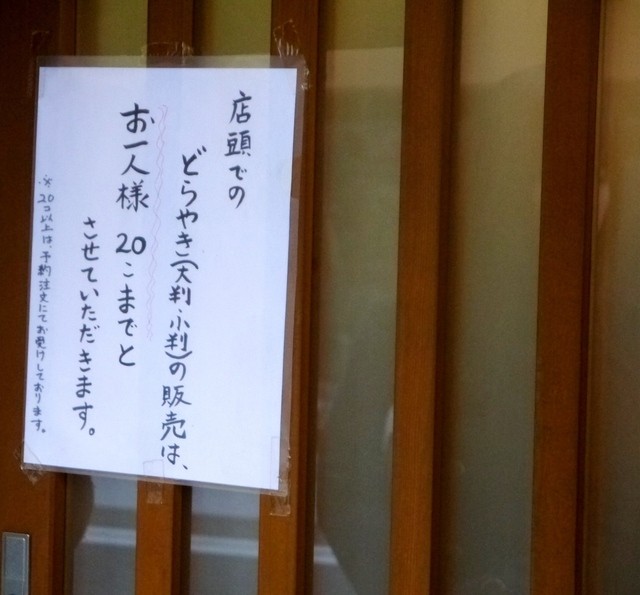 店頭での
どらやき(大判・小判)の販売は、
お一人様 20こまでと
させていただきます。
※20コ以上は、予約注文にてお受けしております。